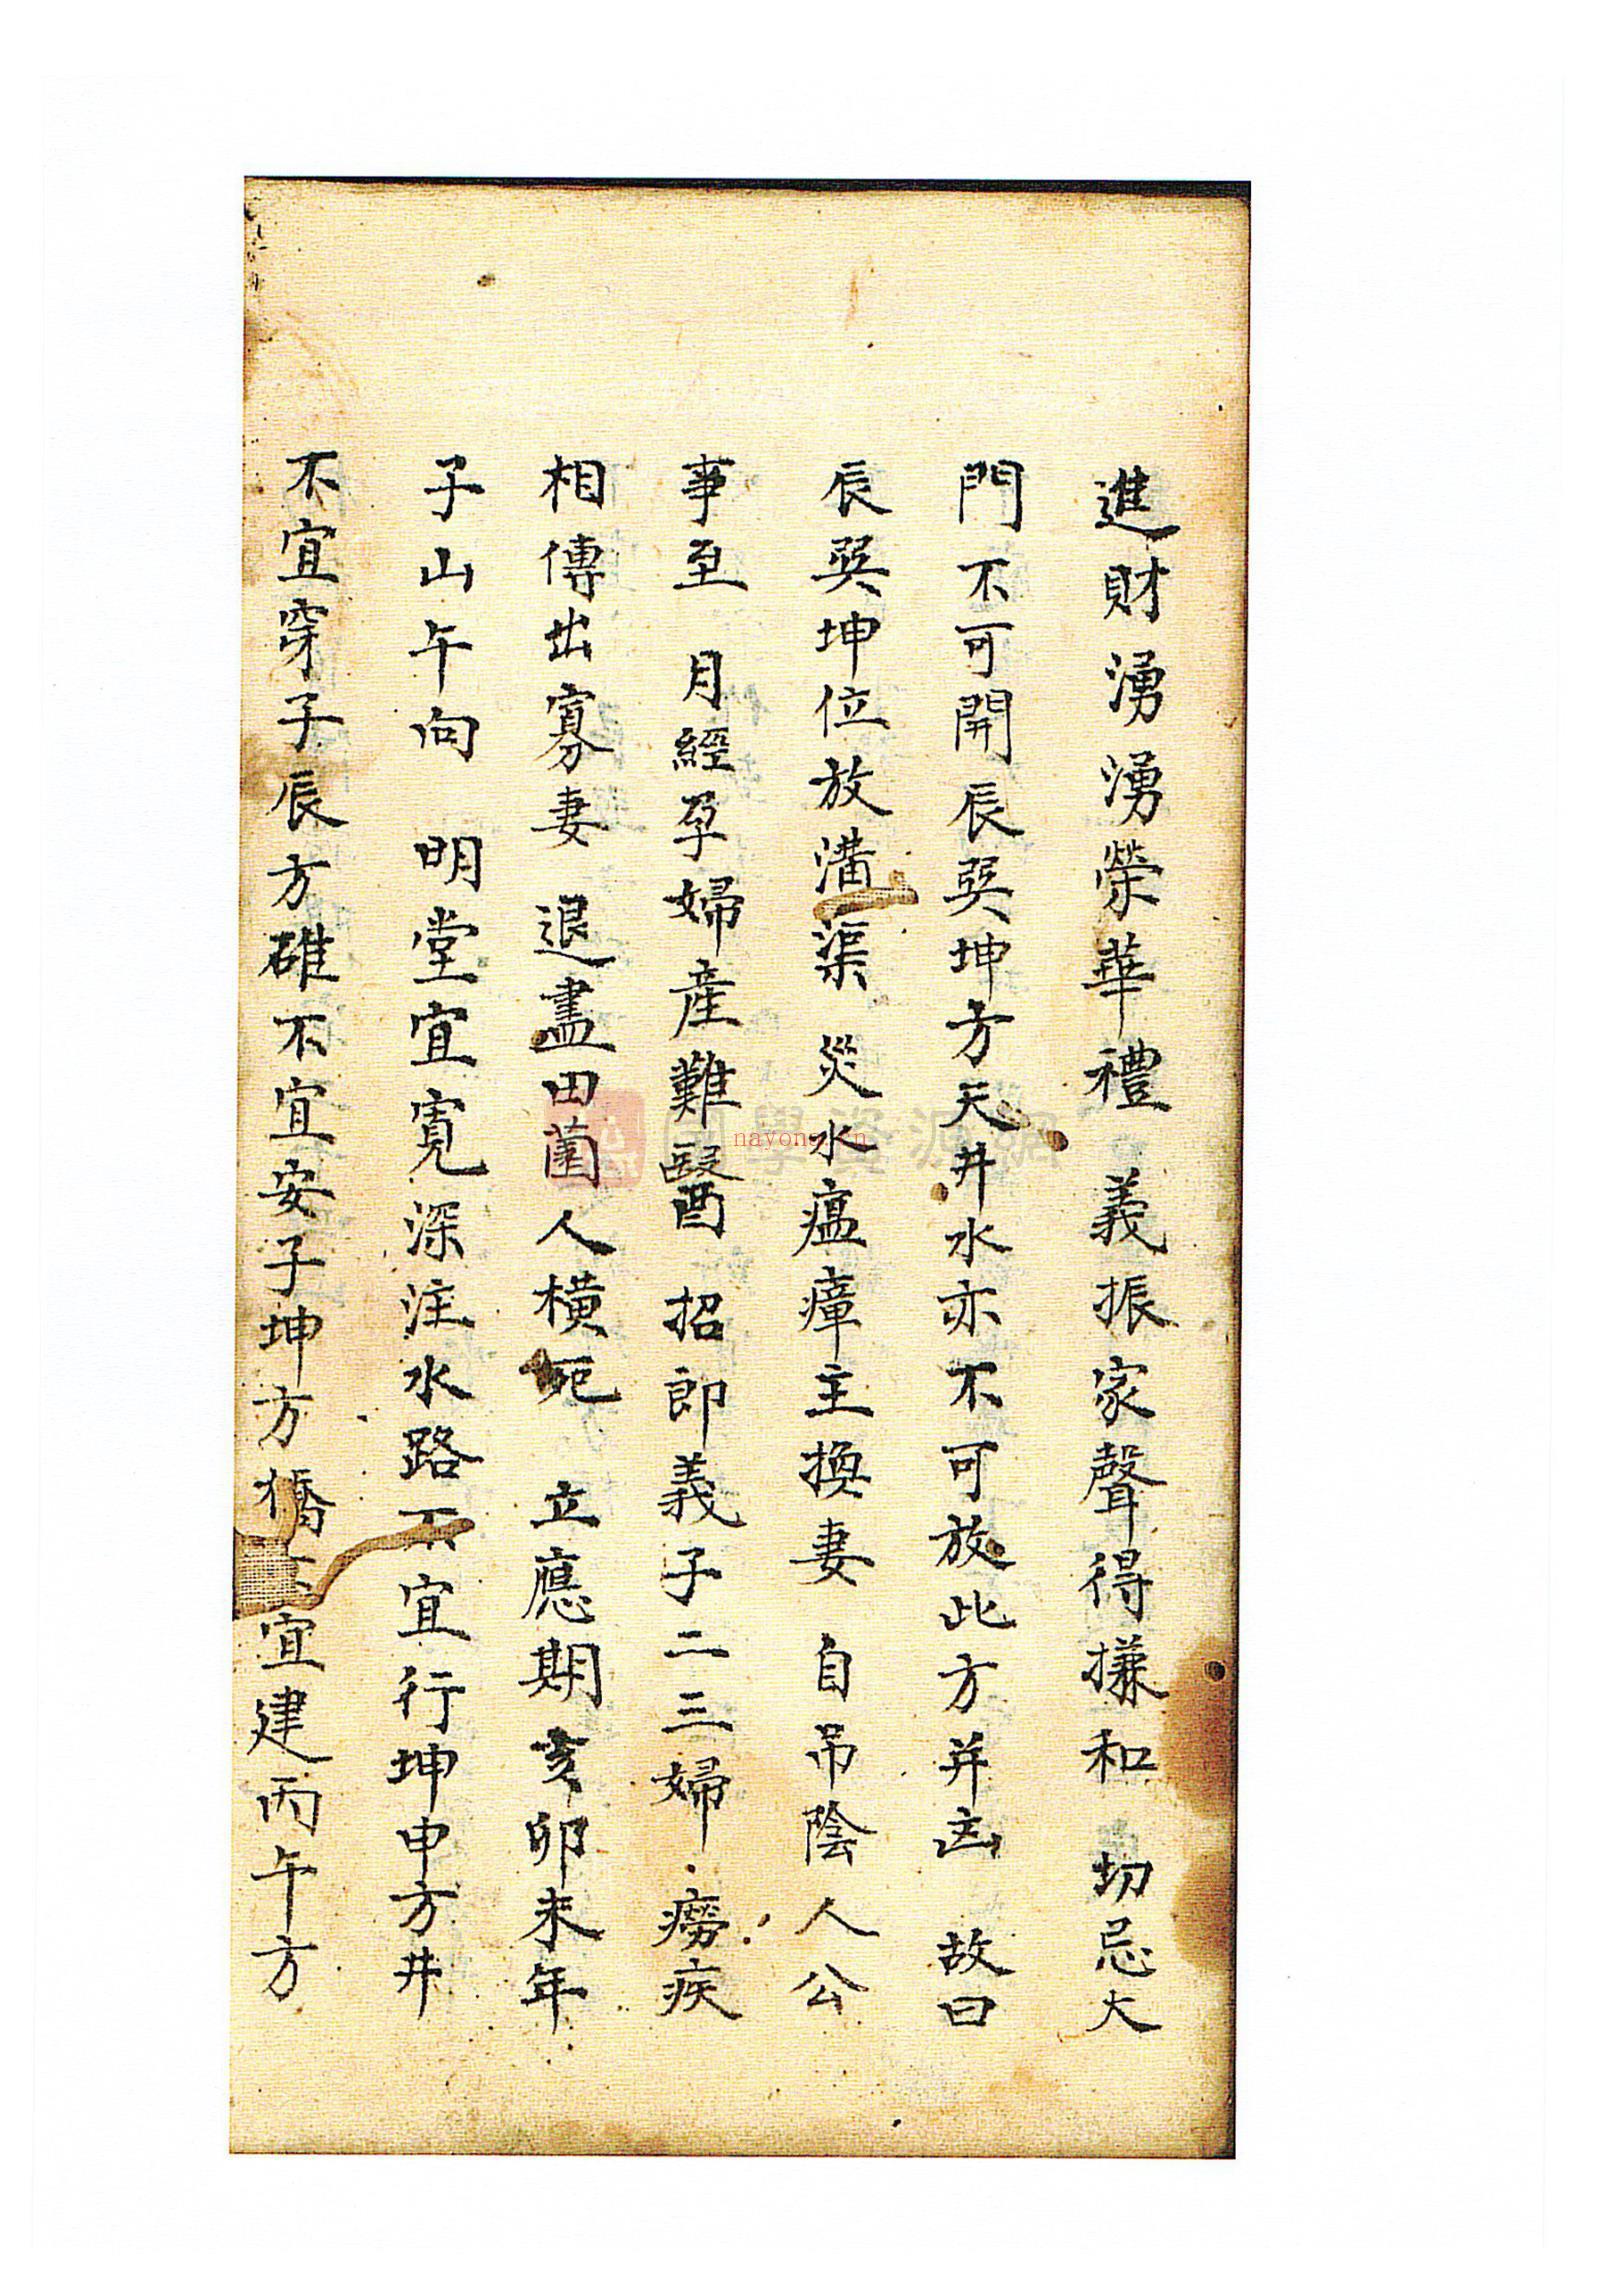 進財湧湧榮華禮 義振家聲得攥和 切忌大
門不可開辰巽坤方天井水亦不可放此方并凶 故曰
辰巽坤位放溝渠 災水瘟瘴主換妻 自吊陰人公
事至 月經孕婦產難醫 招郎義子二三婦 癆疾
相傳出寡妻 退盡田園人橫死 立應期亥卯未年
子山午向 明堂宜寬深注水路不宜行坤申方井
不宜穿子辰方碓不宜安子坤方 宜建丙午方
國學資源網
nayona.cn